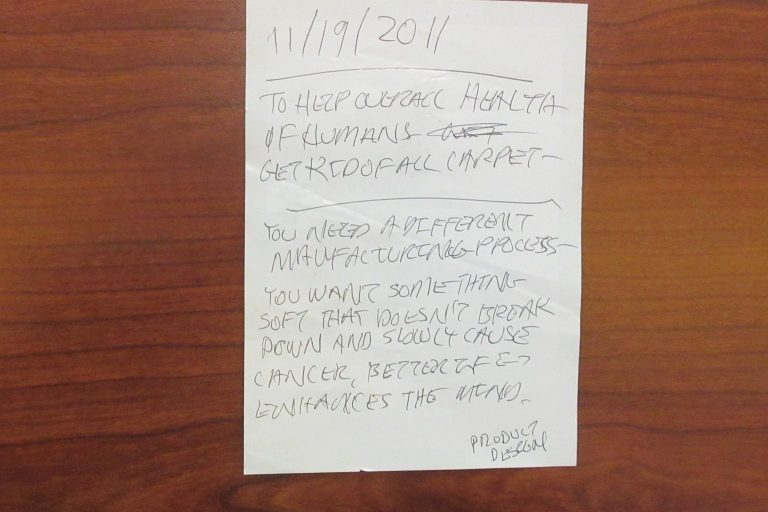 11/19/2011
TO HELP OVERALL HEALTH
OF HUMANS
GET RID OF ALL CARPET-
YOU NEED A DIFFERENT
MANUFACTURING PROCESS-
YOU WANT SOMETHING
SOFT THAT DOESN'T BREAK
DOWN AND SLOWLY CAUSE
CANCER, BETTER IF
ENHANCES THE MIND.
PRODUCT
DESIGN